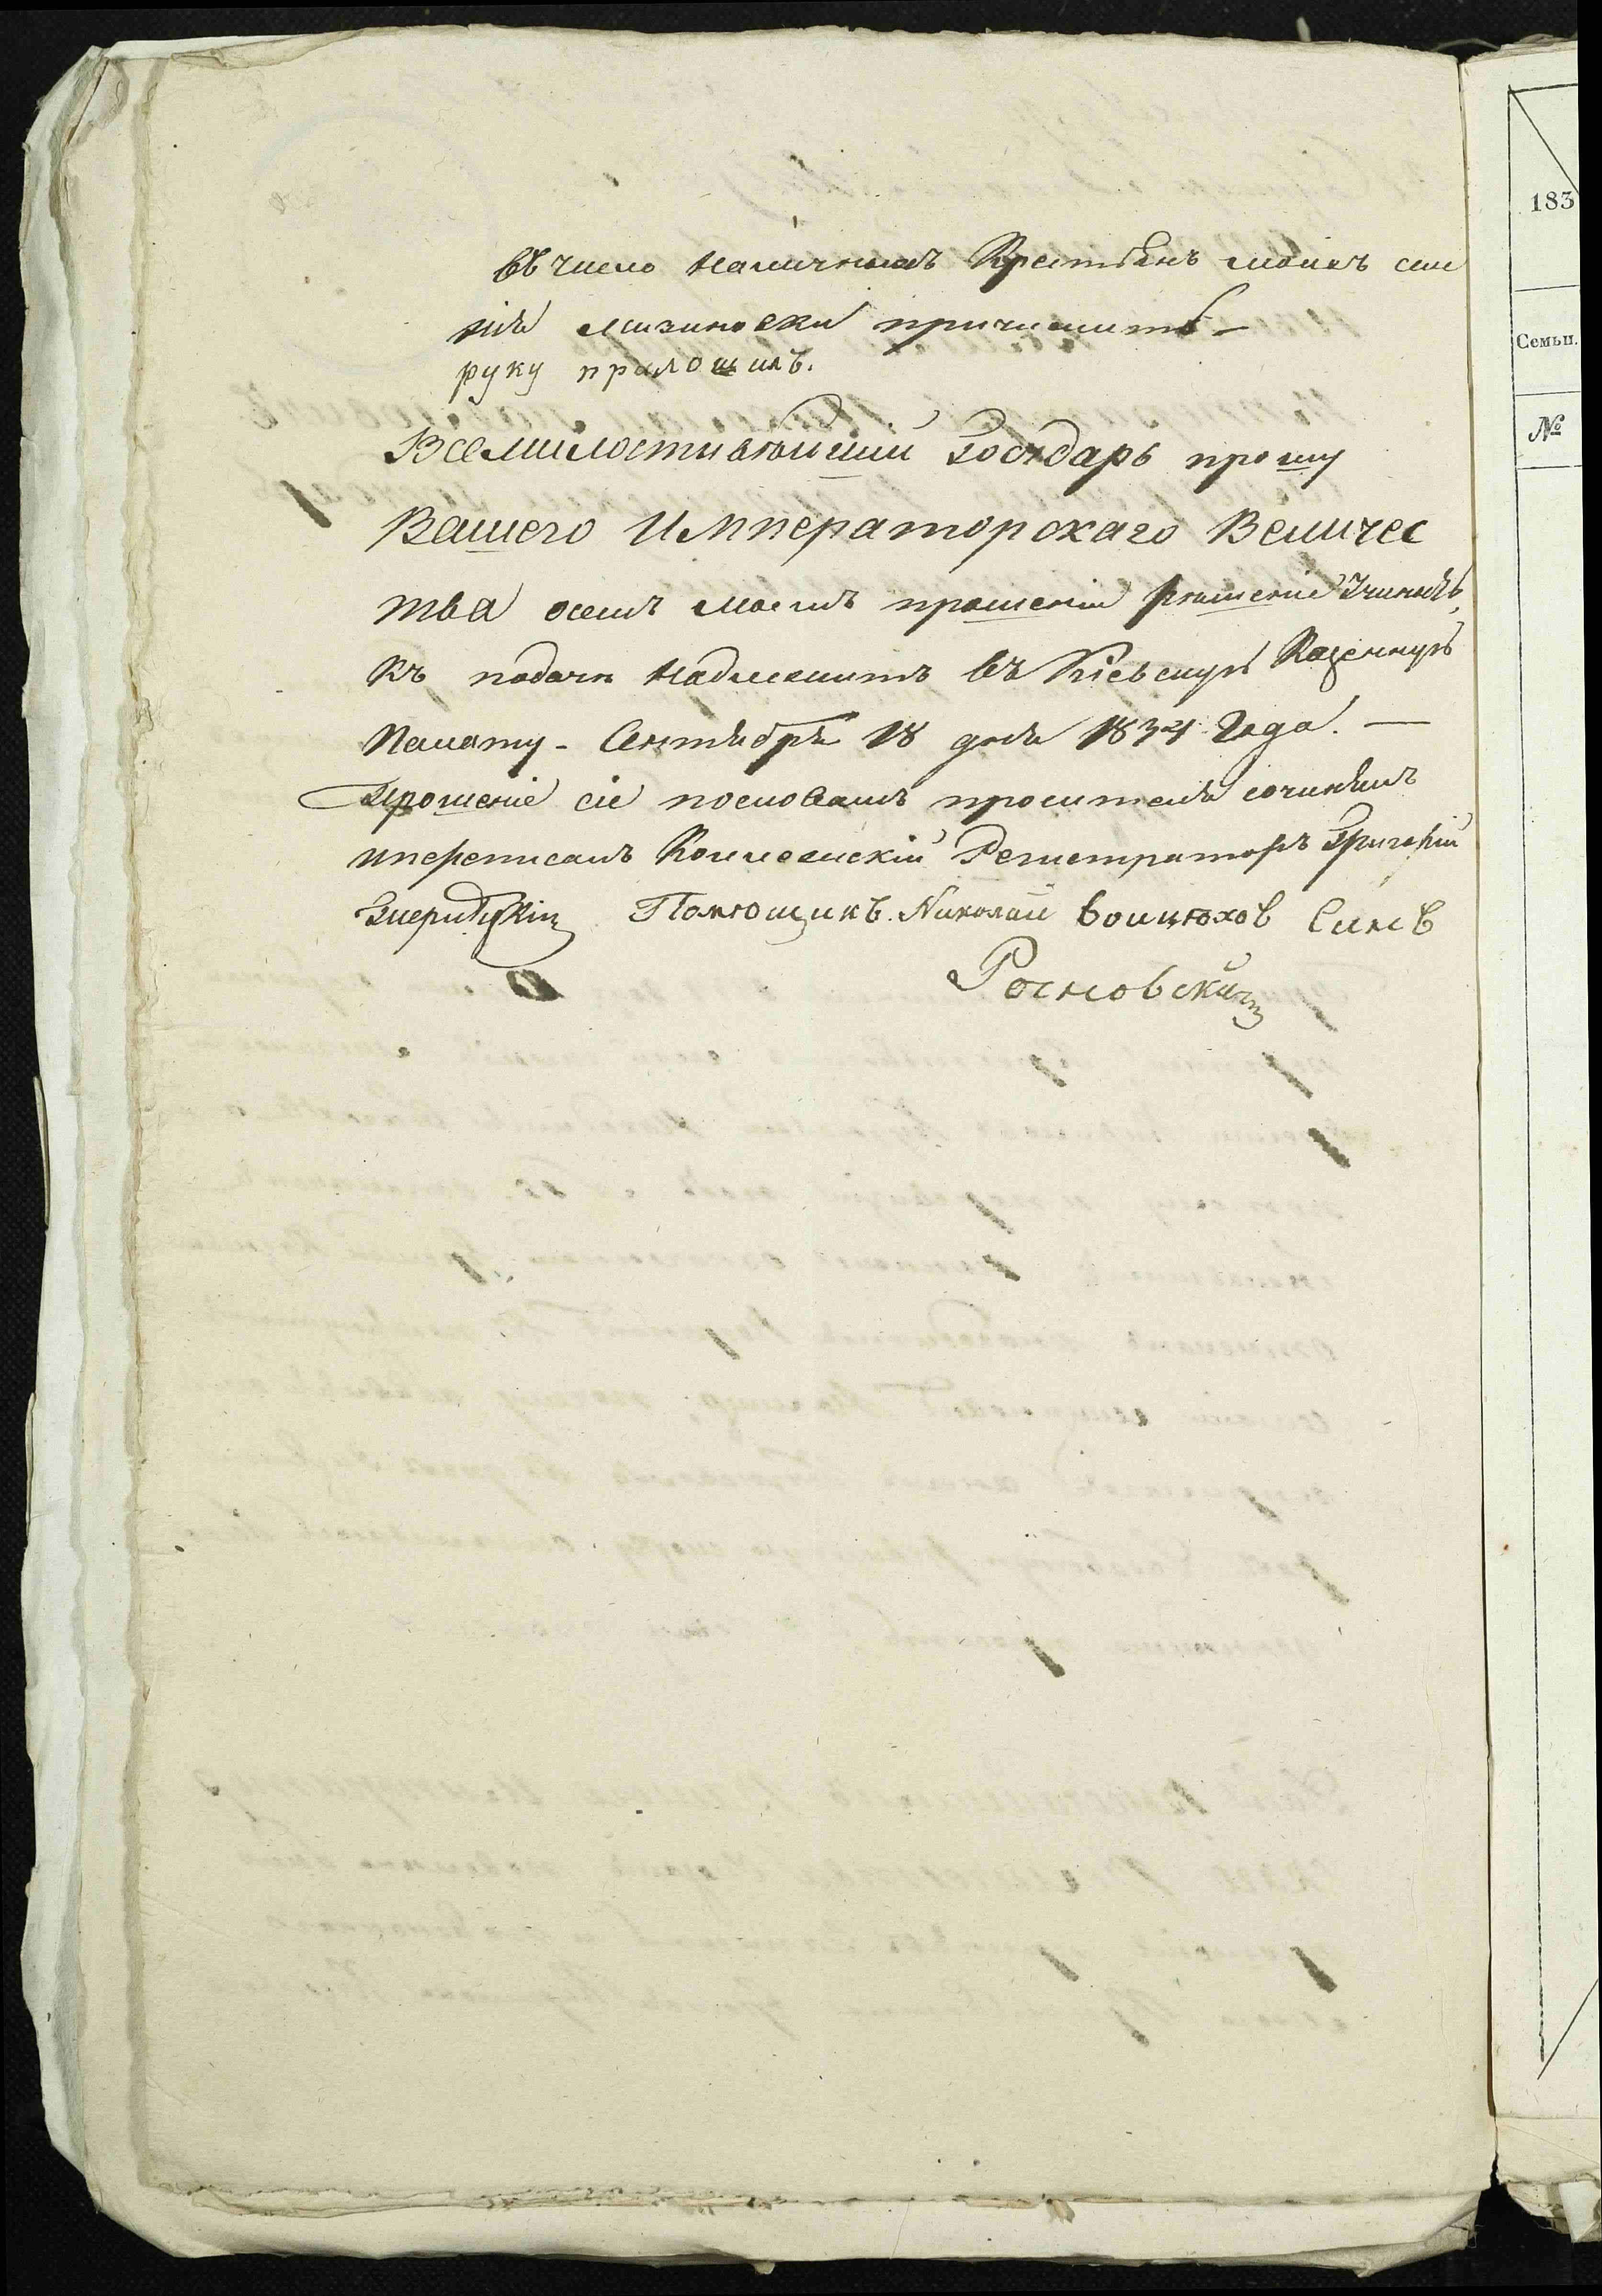 въ число наличныхъ Крестьянъ моихъ сел
нія причислить —
руку приложилъ.
Всемилостивѣйшій Государь прошу
Вашего Императорскаго Величес
тва осемъ моемъ прошеніи рѣшеніе Учинить,
къ подачи надлежитъ въ Кіевскую Казенную
Палату - Сентября 18 дня 1834 Года. —
Прошеніе сіе пословамъ просителя сочинялъ
ипереписалъ Коллежскій Регистраторъ Григорій
Помющикъ Николай Воицюхов Синъ
Росновскій
183
Семьи.
№